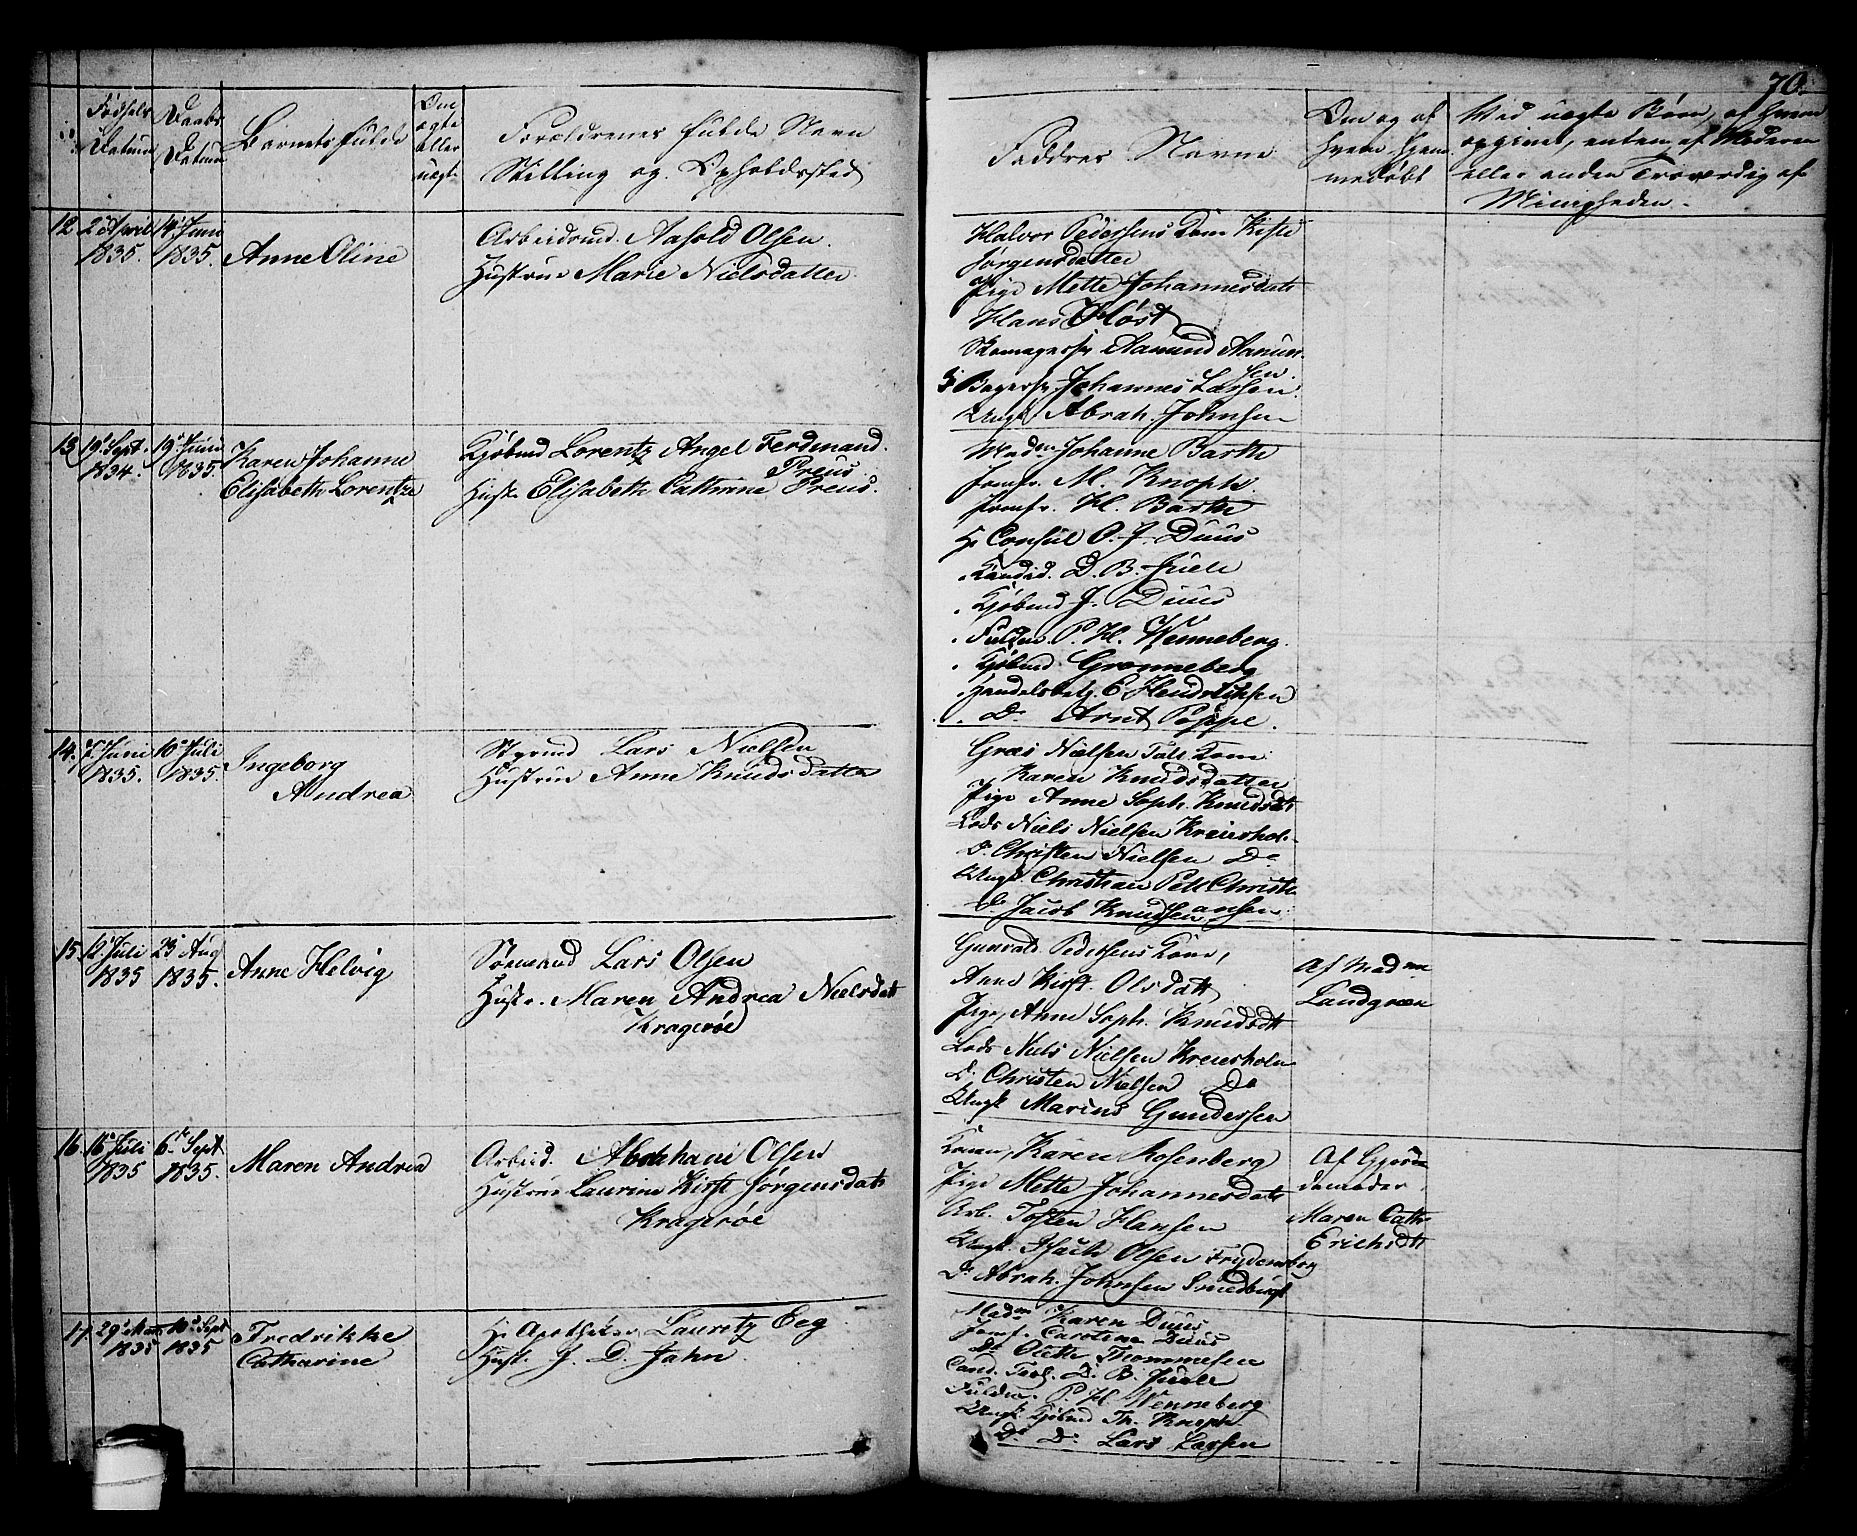 70.
Fødsels Datum
Daabs Datum
Barnets fulde
Om ægte eller uægte
Forældrenes fulde Navn
Stilling og Opholdssted
Faddres Navne
Om og af hvem hjemmedøbt
Ved uægte Børn, af hvem
opgivet, enten af Moderen
eller anden Troværdig af
Menigheden.
12 2 April 14 Juni
1835. 1835. Anne Oline
Arbeidsmd. Aasold Olsen.
Hustrue Marie Nielsdatter
Halvor Pedersens Kone Kirste
Jørgensdatter
Pige Mette Johannesdatt
Hans Høst
Skomagersv Aamund Aamun
sen.
Bagersv. Johannes Larsen
Ungk. Abrah. Johnsen
13 19 Sept. 19 Juni
1834. 1835. Karen Johanne
Elisabeth Lorentze
Kjøbmd Lorentz Angel Ferdinand
Preus.
Hust. Elisabeth Cathrine Preus.
Madm Johanne Barth
Jomfr. M. Knoph.
Jomfr. H. Barth
Hr Consul P. J. Duus
Kandid. D. B. Juell
Kjøbmd J. Duus
Fuldm. P. H. Wenneberg.
Kjøbmd Grønneberg
Handelsbetj. E Hendriksen
Do Arnt Poppe.
14. 7 Juni 10 Juli
1835. 1835. Ingeborg
Andrea
Styrmd Lars Nielsen
Hustrue Anne Knudsdatter
Græs Nielsen Tall. Kone
Karen Knudsdatter
Pige Anne Soph. Knudsdt
Lods Niels Nielsen Kreiershol.
Do Christen Nielsen Do
Ungk. Christian Pett Christi
ansen.
Do Jacob Knudsen
15. 12 Juli 23 Aug
1835 1835. Anne Helvig
Sømand Lars Olsen
Hustr. Maren Andrea Nielsdatt
Kragerøe
Gunvald Pedersens Kone,
Anne Kirst. Olsdatt
Pige, Anne Soph. Knudsdt
Lods Niels Nielsen Kreiersholm
Do Christen Nielsen Do
Ungk Marius Gundersen
Af Madme
Landgreen
16. 16 Juli 6 Sept
1835 1835. Maren Andrea
Arbeid. Abraham Olsen
Hustrue Laurine Kirst Jørgensdatt
Kragerøe
Konen, Karen Rosenberg
Pige Mette Johannesdatt
Arb. Tosten Hansen
Ungk. Isach Olsen Frydensborg
Do Abrah. Johnsen Smedbugt
Af Gjordemoder
Maren Cath.
Erichsdt
17. 29 Marts 10 Sept
1835 1835 Fredrikke
Catharine
Hr Apotheker Lauritz Eeg
Hust. J. D. Jahn.
Madm Karen Duus
Jomf. Caroline Duus
Do Olette Thommesen
Cand. Teol. D. B. Juell
Fuldm. P. H. Wenneberg
Ungk Kjøbmd Th. Knoph
Do Do Lars Larsen